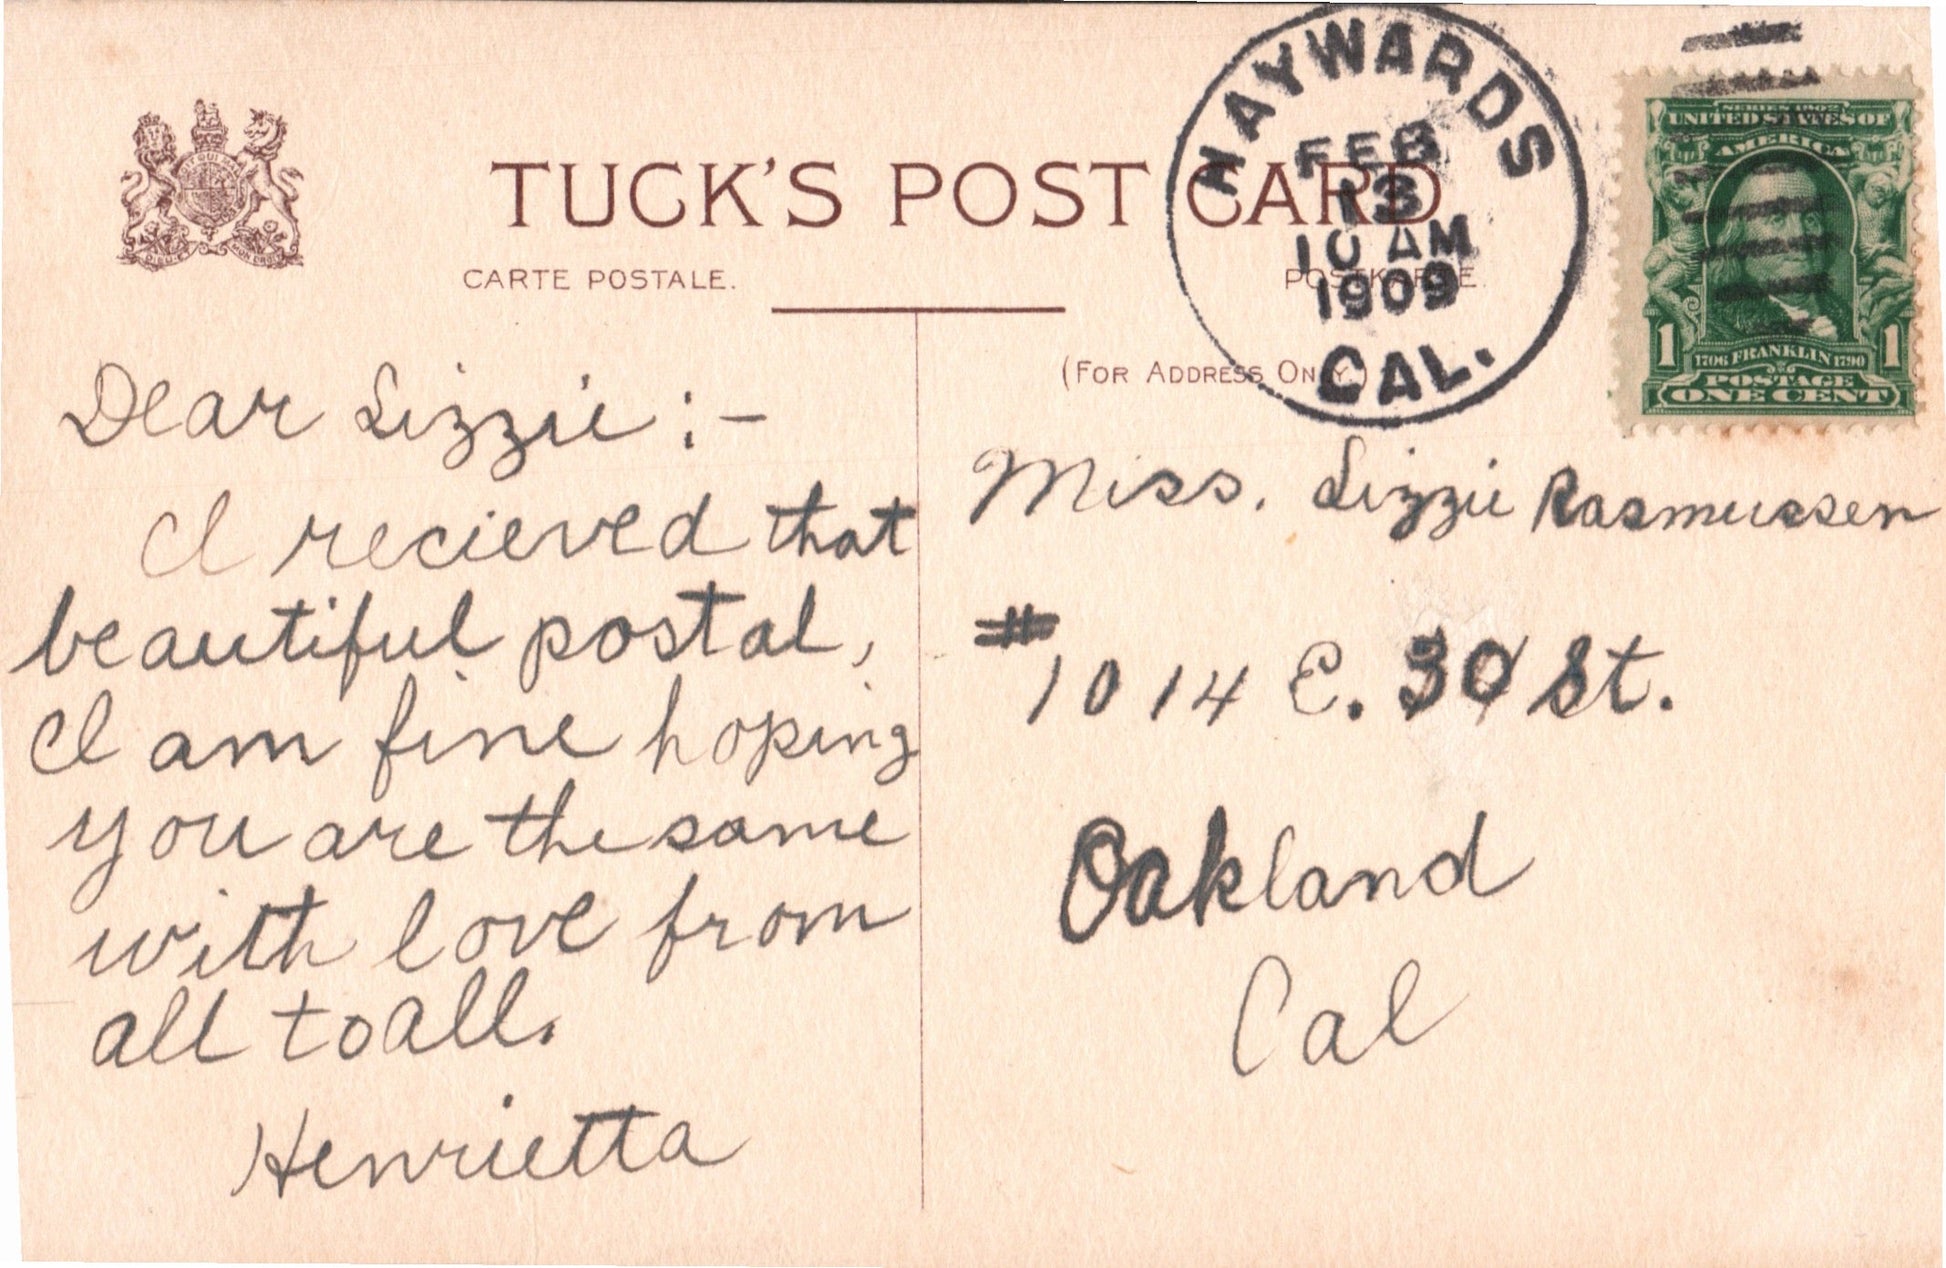 TUCK'S POST CARD
CARTE POSTALE.
POSTKARTE.
(FOR ADDRESS ONLY.)
HAYWARDS
FEB
13
10 AM
1909
CAL.
SERIES 1902
UNITED STATES OF
AMERICA
1 1706 FRANKLIN 1790 1
POSTAGE
ONE CENT
Dear Lizzie :-
I recieved that
beautiful postal,
I am fine hoping
you are the same
with love from
all to all.
Henrietta
Miss. Lizzie Rasmussen
#1014 E. 30 St.
Oakland
Cal